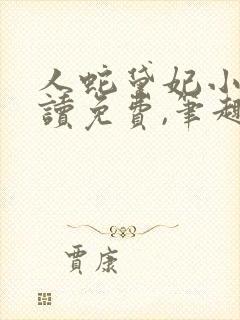 人蛇黛妃小
讀免費,筆趣
賈康